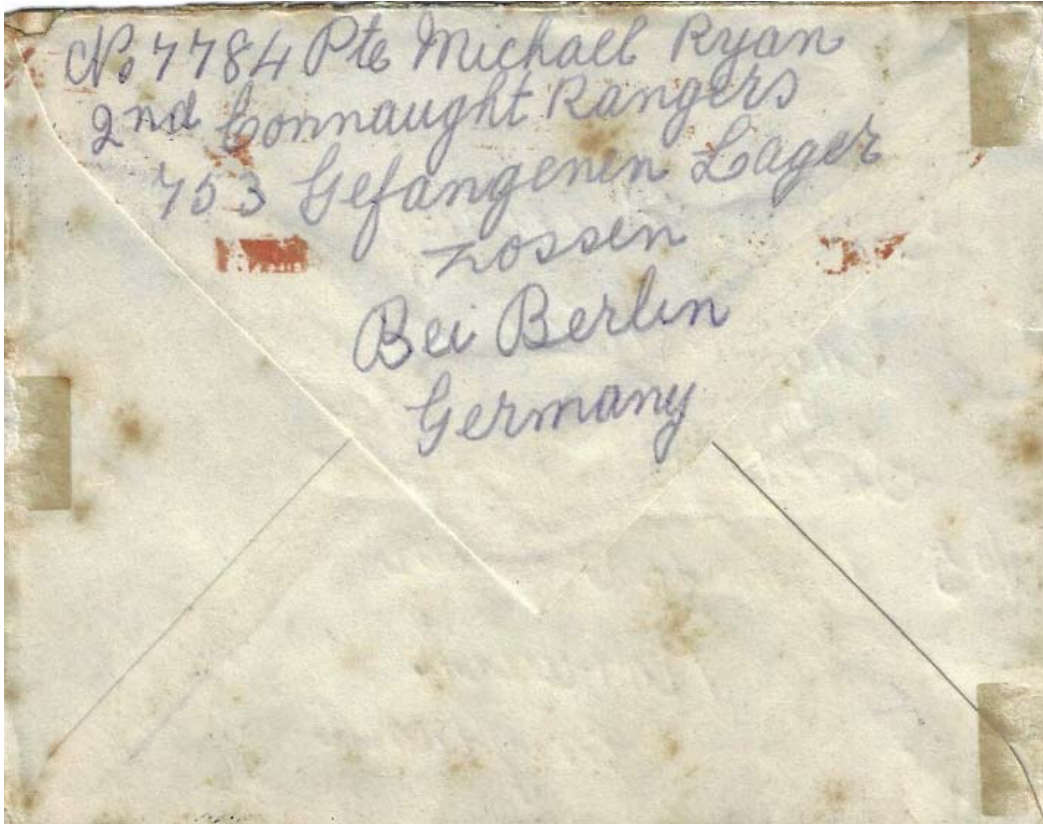 No 7784 Pte Michael Ryan
2nd Connaught Rangers
753 Gefangenen Lager
Zossen
Bei Berlin
Germany